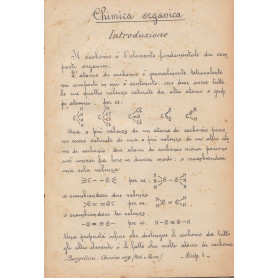 Chimica organica
Introduzione
Il carbonio è l'elemento fondamentale dei com-
posti organici.
L'atomo di carbonio è generalmente tetravalente
nei composti in cui è contenuto, cioè deve avere tutte
le sue quattro valenze saturate da altri atomi o grup-
pi atomici; per es:
Una o più valenze di un atomo di carbonio posso-
no essere saturate da una o più valenze di un altro ato-
mo di carbonio. Due atomi di carbonio possono
unirsi fra loro in diversi modi: o scambiandosi
una sola valenza
per es:
o scambiandosi due valenze
per es:
o scambiandosi tre valenze
per es:
Una proprietà infine che distingue il carbonio da tutti
gli altri elementi è il fatto che molti atomi di carbonio
Disp. 1 -